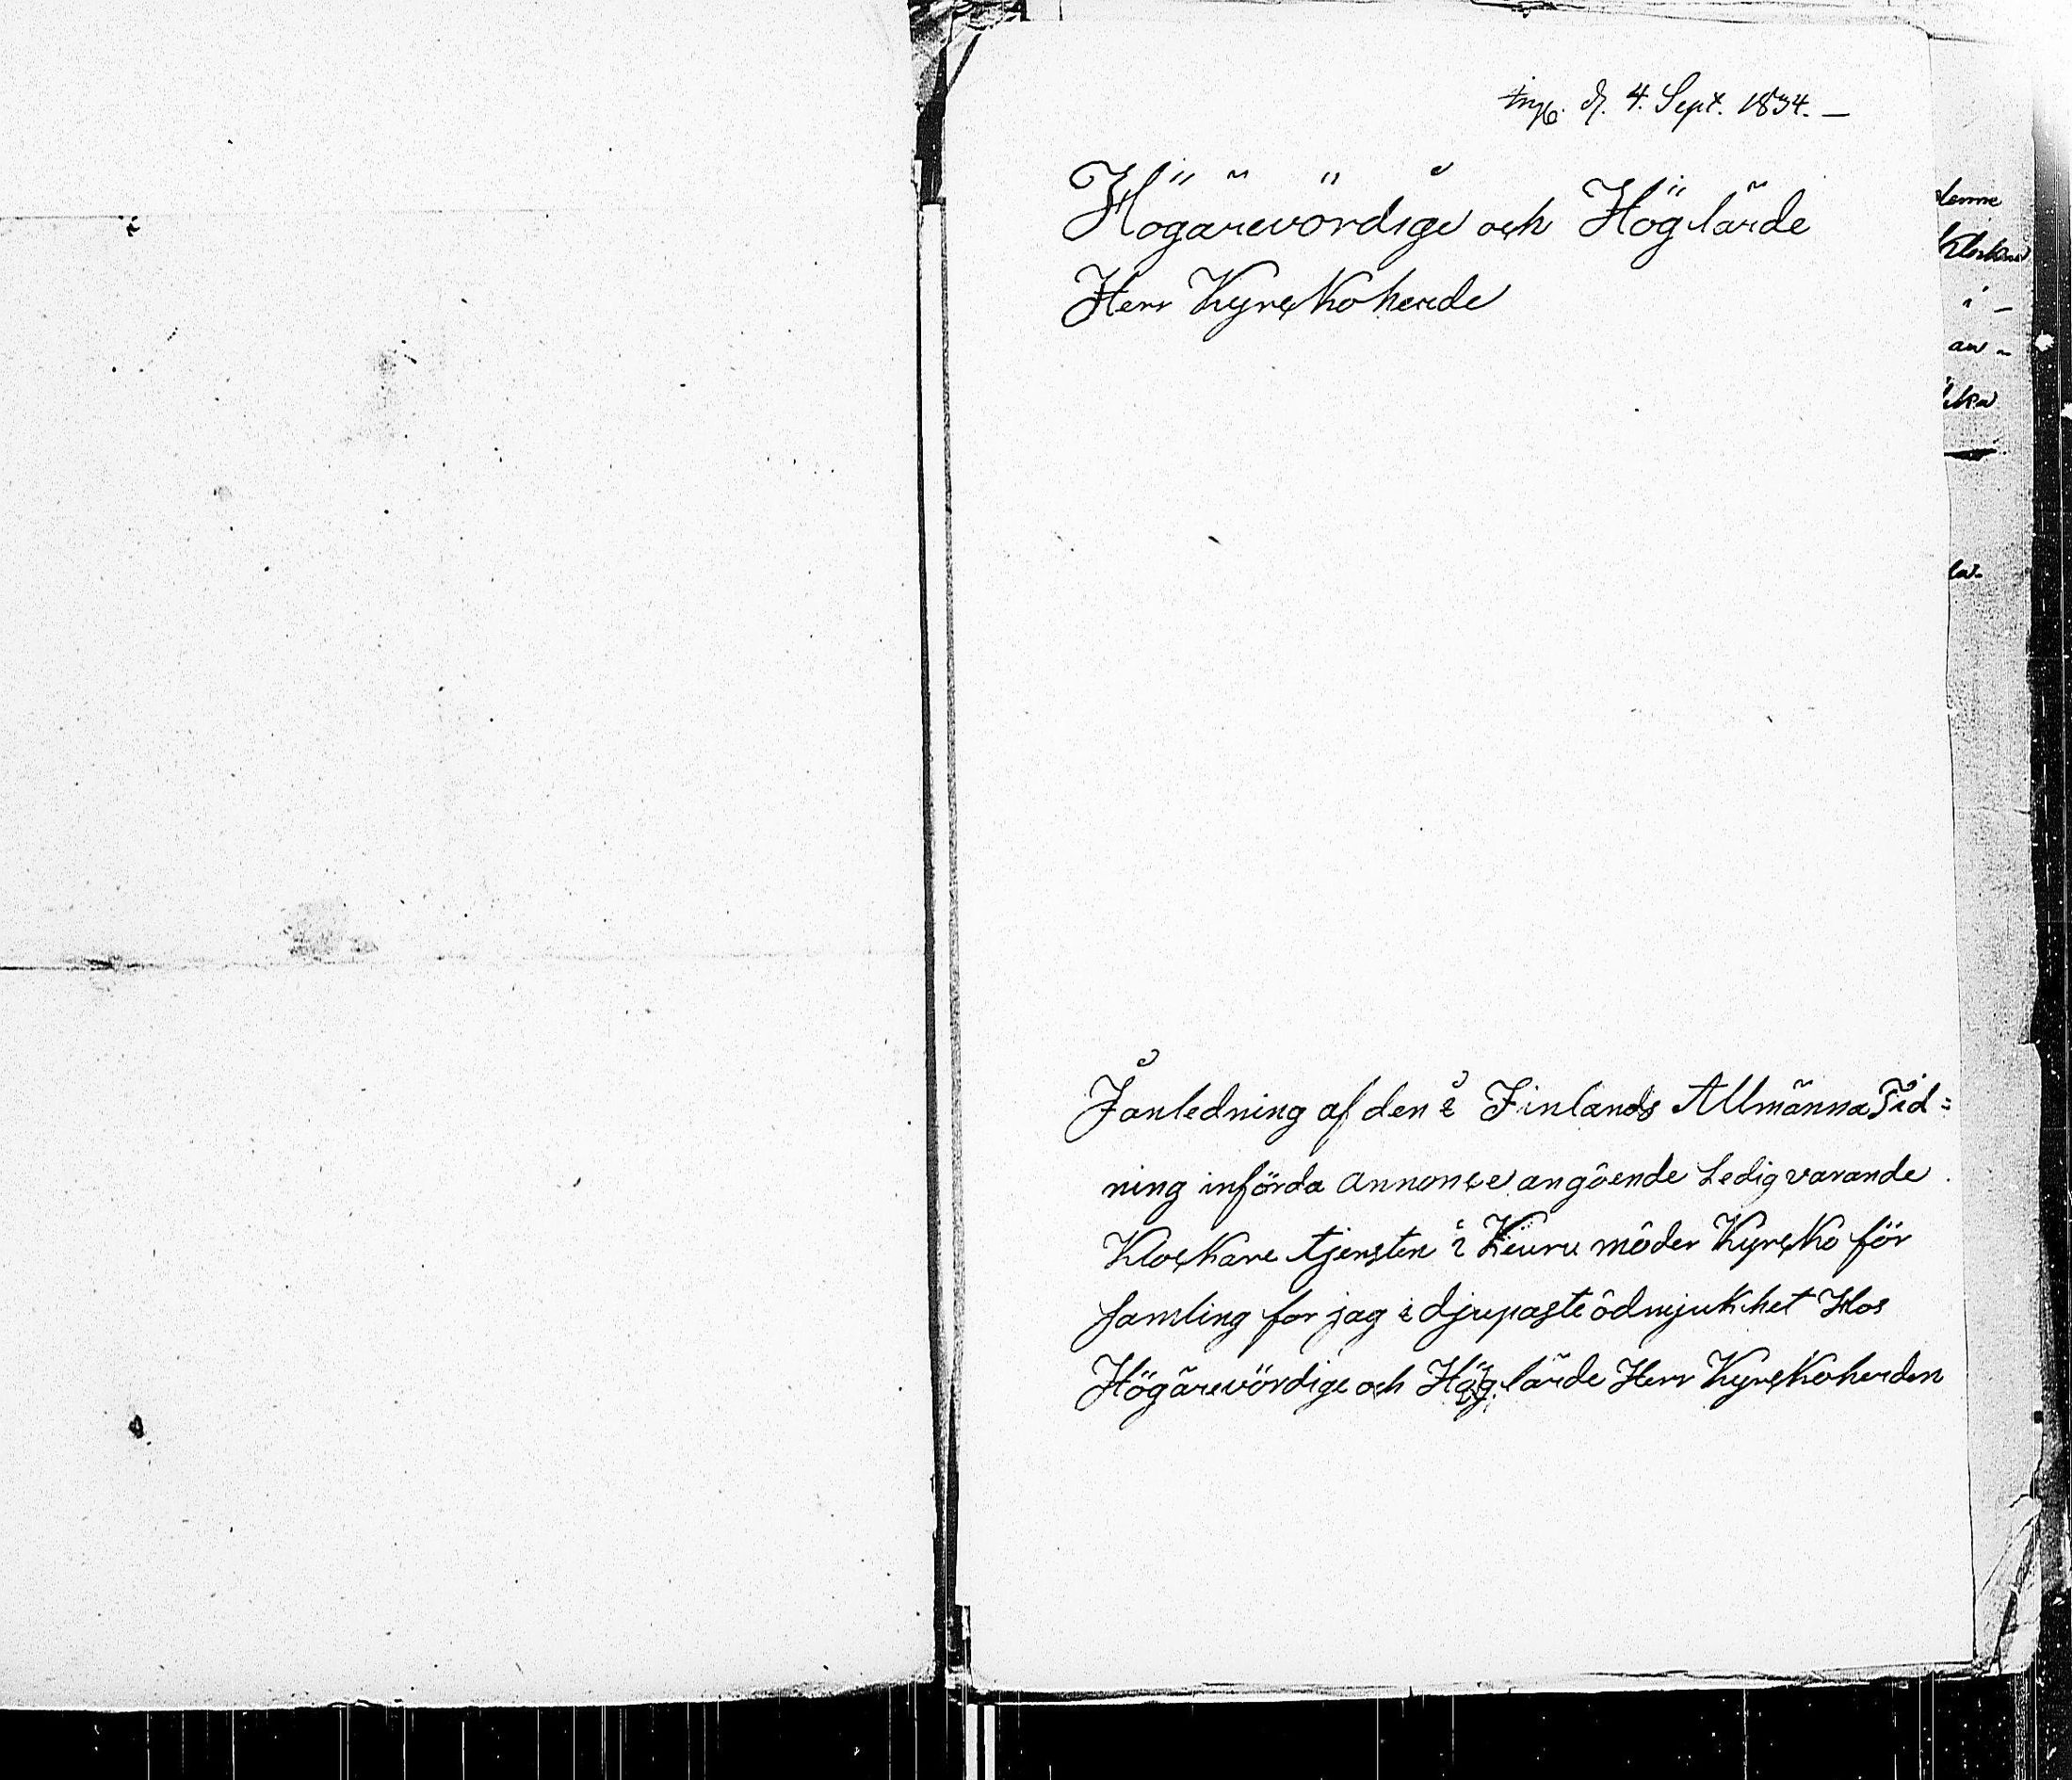 d. 4. Sept. 1834. –
Högärevördige och Höglärde
Herr Kyrckoherde
I anledning af den i Finlands Allmänna Tid=
ning införda annonce angående Ledigvarande
Klockare tjensten i Keuru moder Kyrcko för
samling for jag i djupaste ödmjukhet Hos
Högärevördige och Höglärde Herr Kyrckoherden